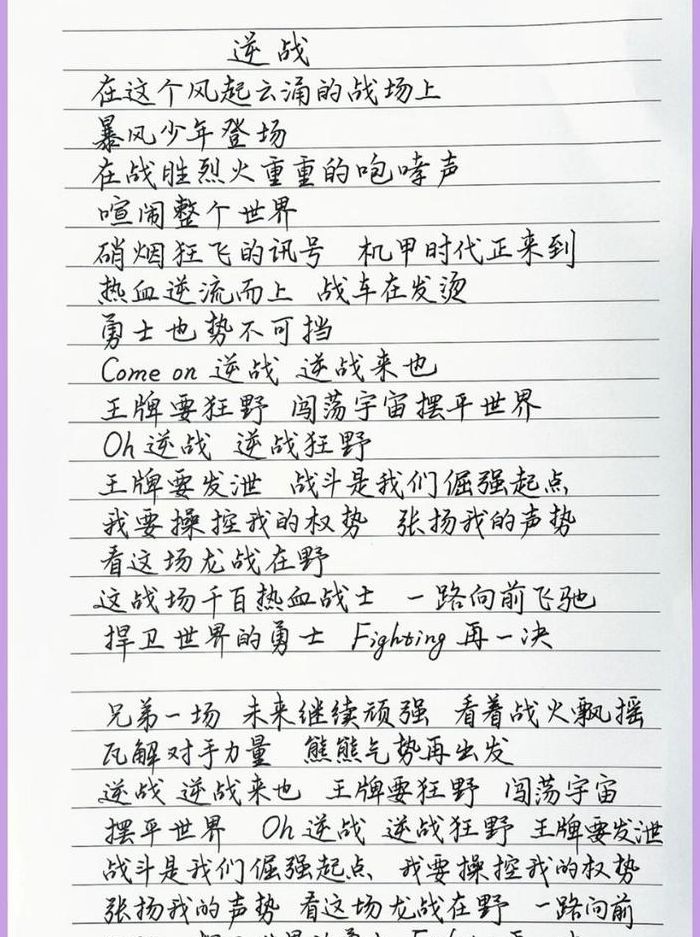 逆战
在这个风起云涌的战场上
暴风少年登场
在战胜烈火重重的咆哮声
喧闹整个世界
硝烟狂飞的讯号 机甲时代正来到
热血逆流而上 战车在发烫
勇士也势不可挡
Come on 逆战 逆战来也
王牌要狂野 闯荡宇宙摆平世界
Oh 逆战 逆战狂野
王牌要发泄 战斗是我们倔强起点
我要操控我的权势 张扬我的声势
看这场龙战在野
这战场千百热血战士 一路向前飞驰
捍卫世界的勇士 Fighting 再一决
兄弟一场 未来继续顽强 看着战火飘摇
瓦解对手力量 熊熊气势再出发
逆战 逆战来也 王牌要狂野 闯荡宇宙
摆平世界 Oh 逆战 逆战狂野 王牌要发泄
战斗是我们倔强起点 我要操控我的权势
张扬我的声势 看这场龙战在野 一路向前